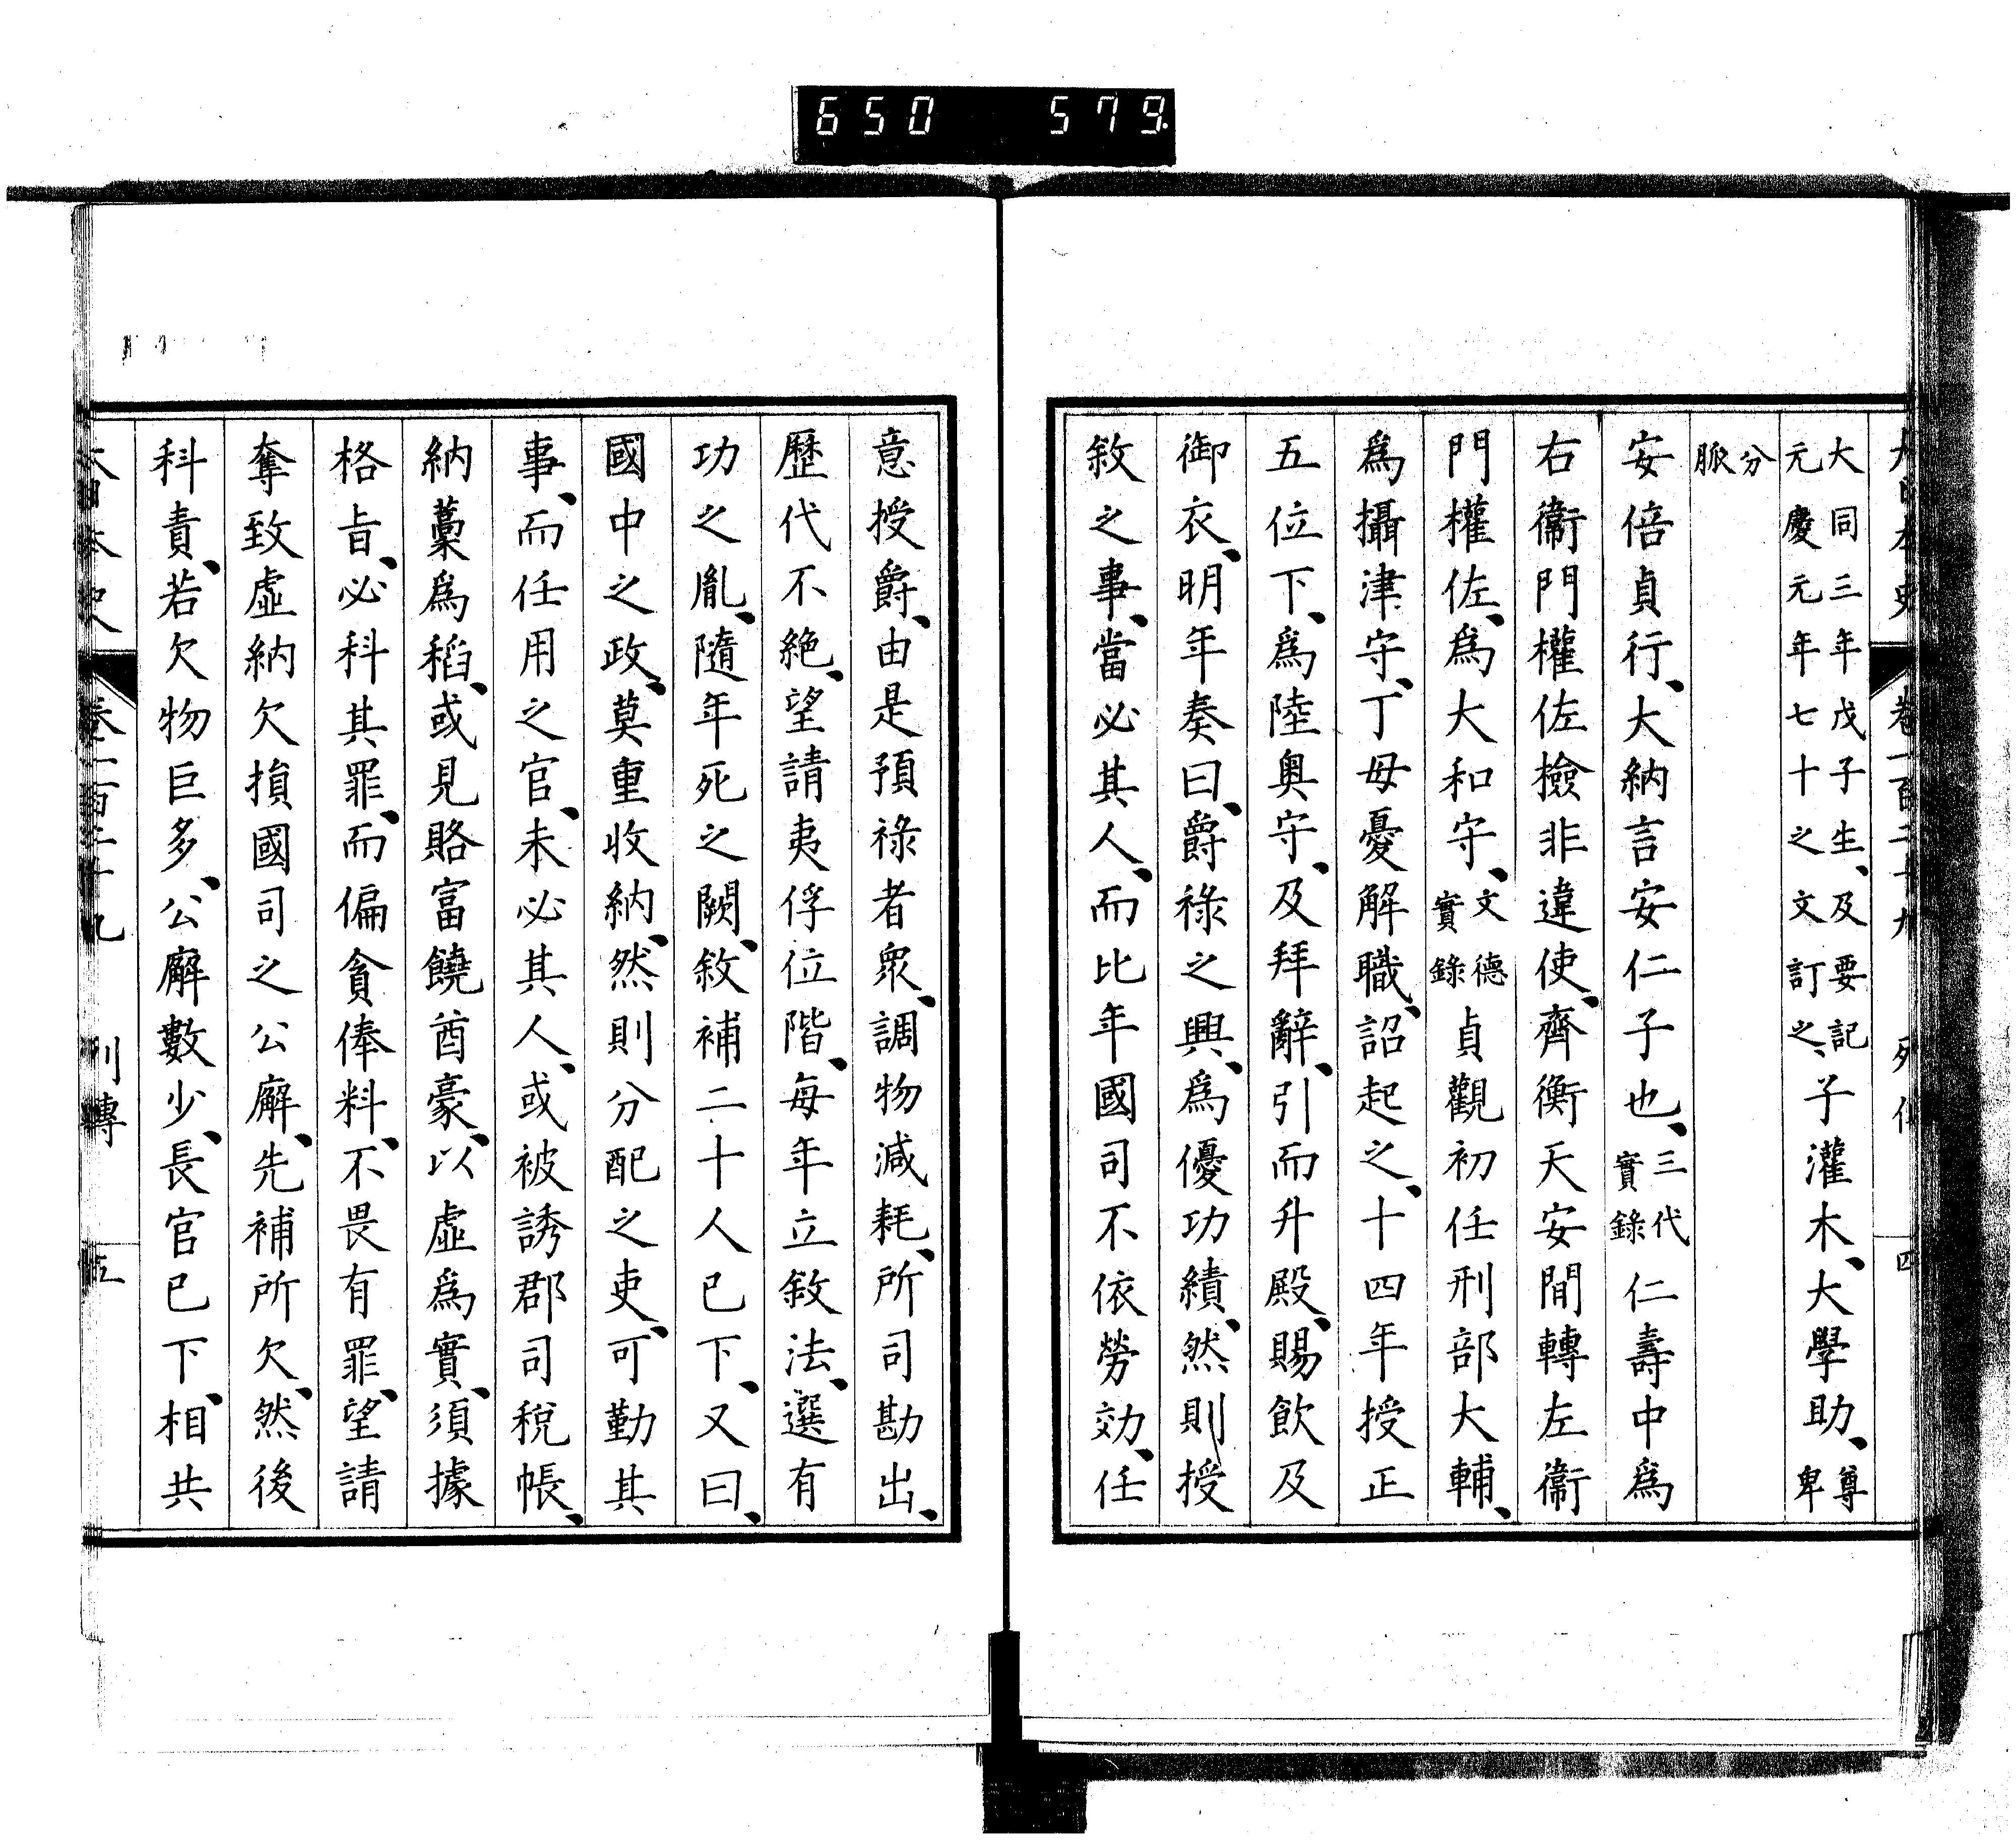 650 579
大日本史 卷一百二十九 列傳 四
大同三年戊子生、及要記
元慶元年七十之文訂之、子灌木、大學助、尊卑
分脈
安倍貞行、大納言安仁子也、三代實錄仁壽中爲
右衞門權佐檢非違使、齊衡天安間轉左衞
門權佐、爲大和守、文德實錄貞觀初任刑部大輔、
爲攝津守、丁母憂解職、詔起之、十四年授正
五位下、爲陸奧守、及拜辭、引而升殿、賜飮及
御衣、明年奏曰、爵祿之興、爲優功績、然則授
敘之事、當必其人、而比年國司不依勞効、任
意授爵、由是預祿者衆、調物減耗、所司勘出、
歷代不絕、望請夷俘位階、每年立敘法、選有
功之胤、隨年死之闕、敘補二十人已下、又曰、
國中之政、莫重收納、然則分配之吏、可勤其
事、而任用之官、未必其人、或被誘郡司稅帳、
納藁爲稻、或見賂富饒酋豪、以虛爲實、須據
格旨、必科其罪、而偏貪俸料、不畏有罪、望請
奪致虛納欠損國司之公廨、先補所欠、然後
科責、若欠物巨多、公廨數少、長官已下、相共
大日本史 卷一百二十九 列傳 五